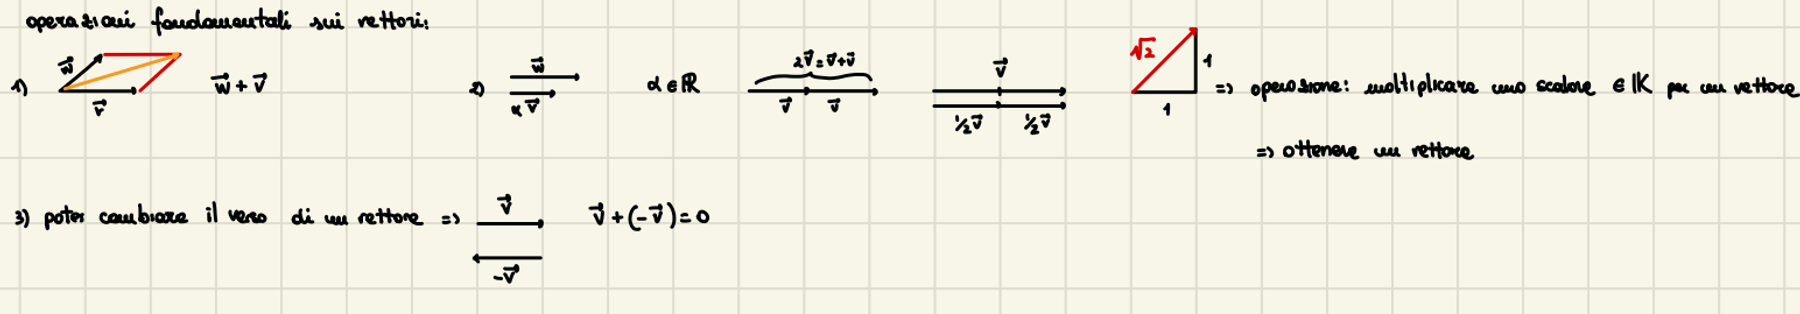 operazioni fondamentali sui vettori:
1) w⃗ v⃗ w⃗ + v⃗ 2) w⃗ α v⃗ α ∈ ℝ 2v⃗ = v⃗ + v⃗ v⃗ v⃗ v⃗ 1/2 v⃗ 1/2 v⃗ √2 1 1 => operazione: moltiplicare uno scalare ∈ 𝕂 per un vettore
=> ottenere un vettore
3) poter cambiare il verso di un vettore => v⃗ -v⃗ v⃗ + (-v⃗) = 0